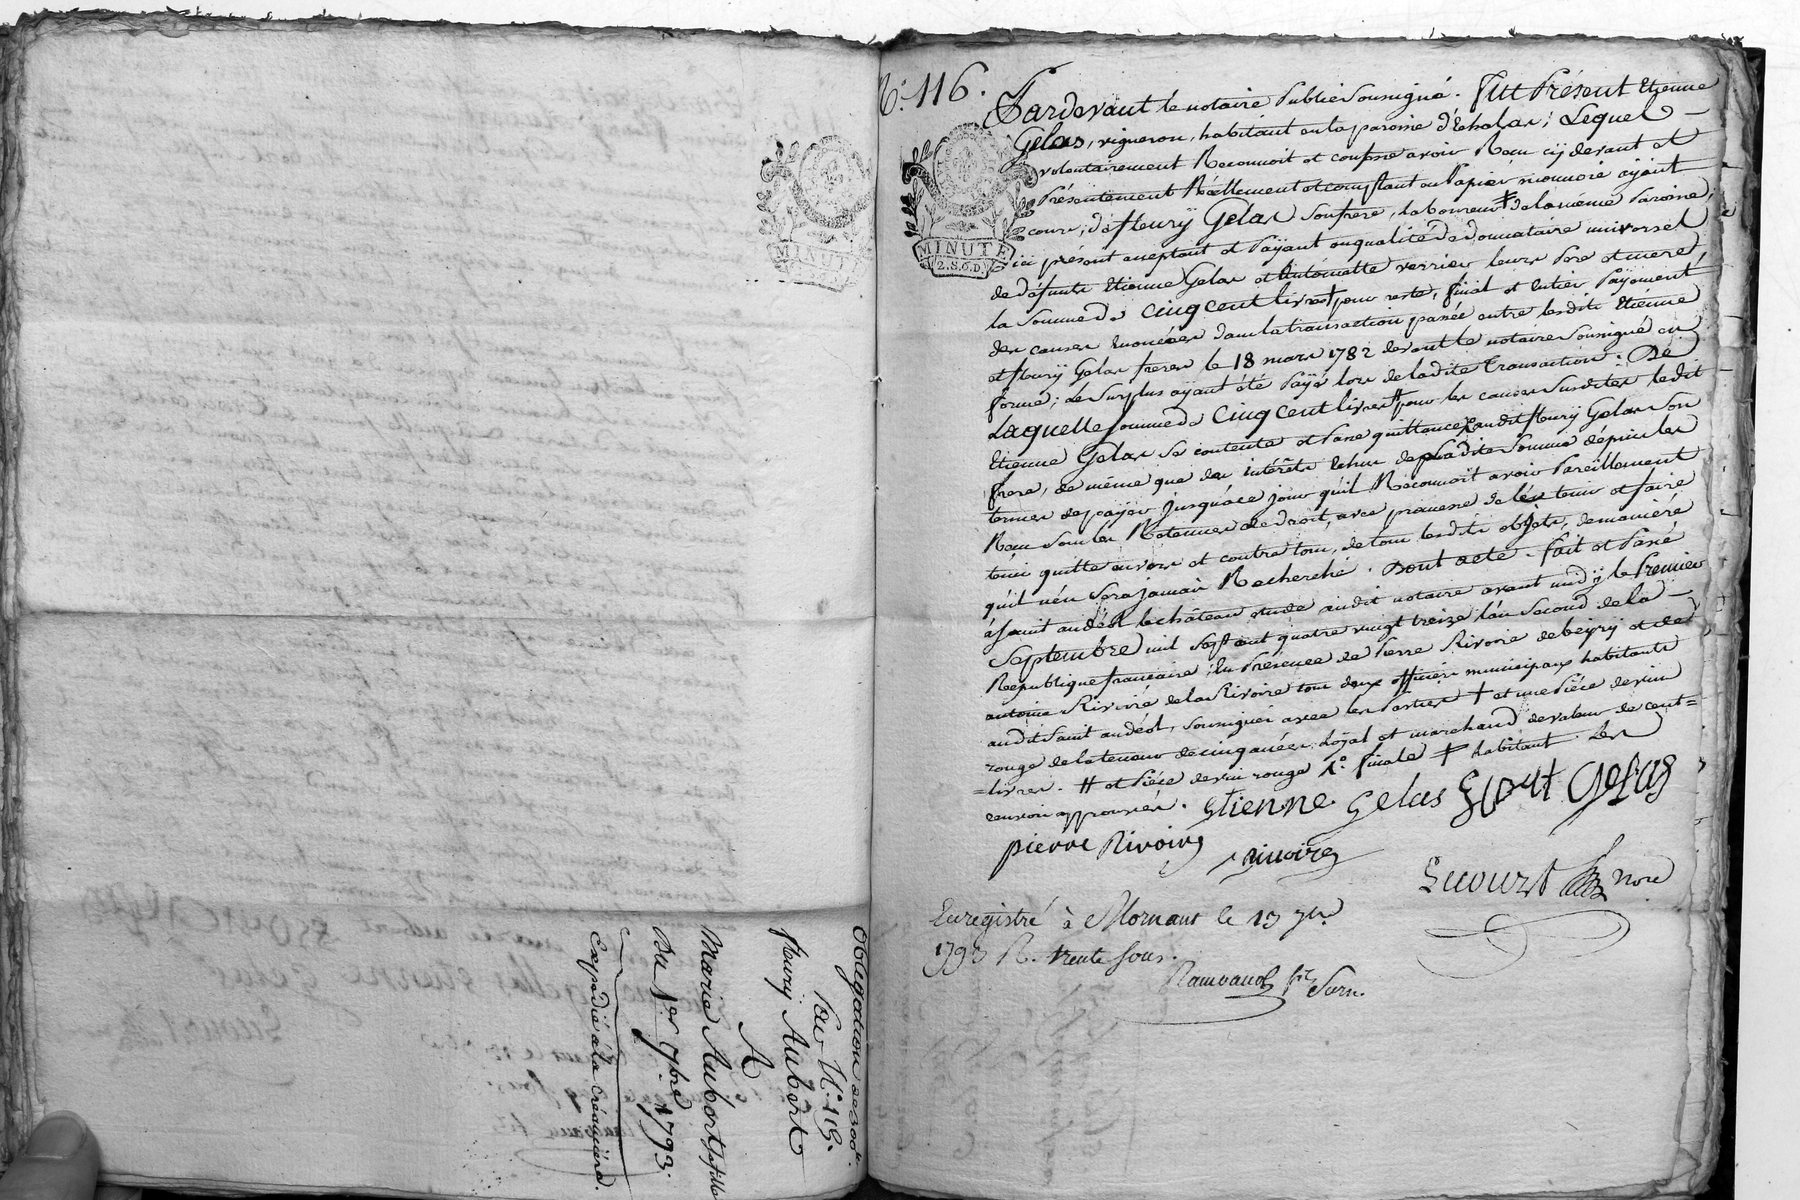 Obligation de 300lt.
Pour N.° 115.
fleury Aubert
A
Marie Aubert sa fille
Du 1er 7bre 1793.
Expédié à la Créancière.
N.° 116.
MINUTE
2. S. 6. D.
MINUTE
Pardevant le notaire Public soussigné. fut Présent Etienne
Gelas, vigneron, habitant en la paroisse d'Echalas; Lequel
volontairement Reconnoit et confesse avoir Recu cy devant et
Présentement Réellement et comptant en Papier monnoie ayant
cours, de fleury Gelas son frere, laboureur ‡ de la même Paroisse,
ici présent acceptant et Payant en qualité de donnataire universel
de défunts Etienne Gelas et Antoinette verrier leurs Pere et mere
la somme de cinq cent livres † pour reste, final et entier Payement
des causes enoncées dans la transaction passée entre lesdits Etienne
et fleury Gelas freres le 18 mars 1782 devant le notaire soussigné en
forme; le surplus ayant été Payé lors de ladite transaction. De
Laquelle somme de cinq cent livres # pour les causes susdites ledit
Etienne Gelas se contente et Passe quittance audit fleury Gelas son
frere, de même que des intérêts échus de ladite somme depuis les
termes de payer jusqu'à ce jour qu'il Reconnoit avoir Pareillement
Recu sous les Retenues de droit, avec promesse de l'en tenir et faire
tenir quitte envers et contre tous, de tous lesdits objets, de maniere
qu'il n'en sera jamais Recherché. Dont acte. fait et Passé
à saint andéol le château etude dudit notaire avant midy le Premier
Septembre mil sept cent quatre vingt treize l'an second de la
République francaise, En Présence de Pierre Rivoire de beyry et de
antoine Rivoire de la Rivoire tous deux officiers municipaux habitants
audit saint andéol, soussignés avec les Parties † et une Piéce de vin
rouge de la teneur de cinq anées, loyal et marchand de valeur de cent=
=livres. # et Piéce de vin rouge 1.° finale ‡ habitant. Les
renvois approuvés. Etienne Gelas Gelas
pierre Rivoire Rivoire
Lecourt Nore
Enregistré à Mornant le 13 7bre
1793 R. trente sous.